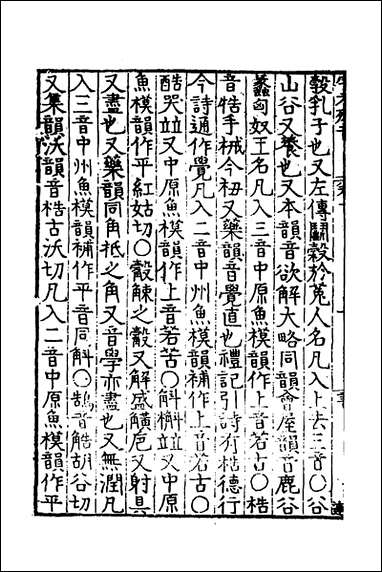 穀乳子也又左傳鬭穀於菟人名凡入上去三音〇谷
山谷又養也又本韻音欲解大略同韻會屋韻音鹿谷
蠡匈奴王名凡入三音中原魚模韻作上音若古〇梏
音牿手械今杻又藥韻音覺直也禮記引詩有梏德行
今詩通作覺凡入二音中州魚模韻補作上音若古〇
酷哭竝又中原魚模韻作上音若苦〇斛槲竝又中原
魚模韻作平紅姑切〇觳觫之觳又解盛觵巵又射具
又盡也又藥韻同角抵之角又音學亦盡也又無潤凡
入三音中州魚模韻補作平音同斛〇鵠音觡胡谷切
又集韻沃韻音梏古沃切凡入二音中原魚模韻作平